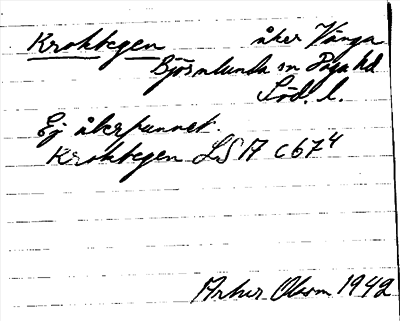 Kroktegen åker Vånga
Björnlunda sn Daga hd
Söd. l.
Ej återfunnet.
Kroktegen LSA C67⁴
Arthur Olsson 1942